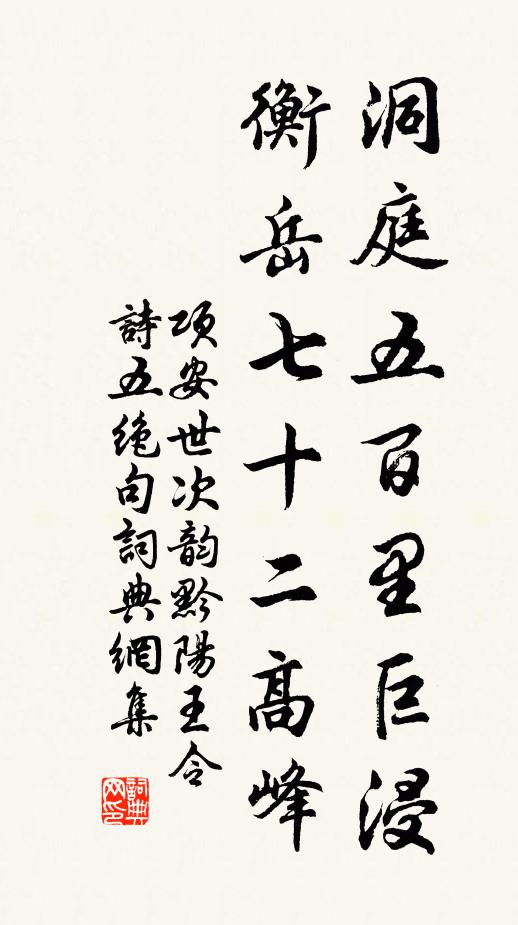 洞庭五百里巨浸
衡岳七十二高峰
项安世次韵黔陽王令
詩五绝句詞典網集
詞典网印